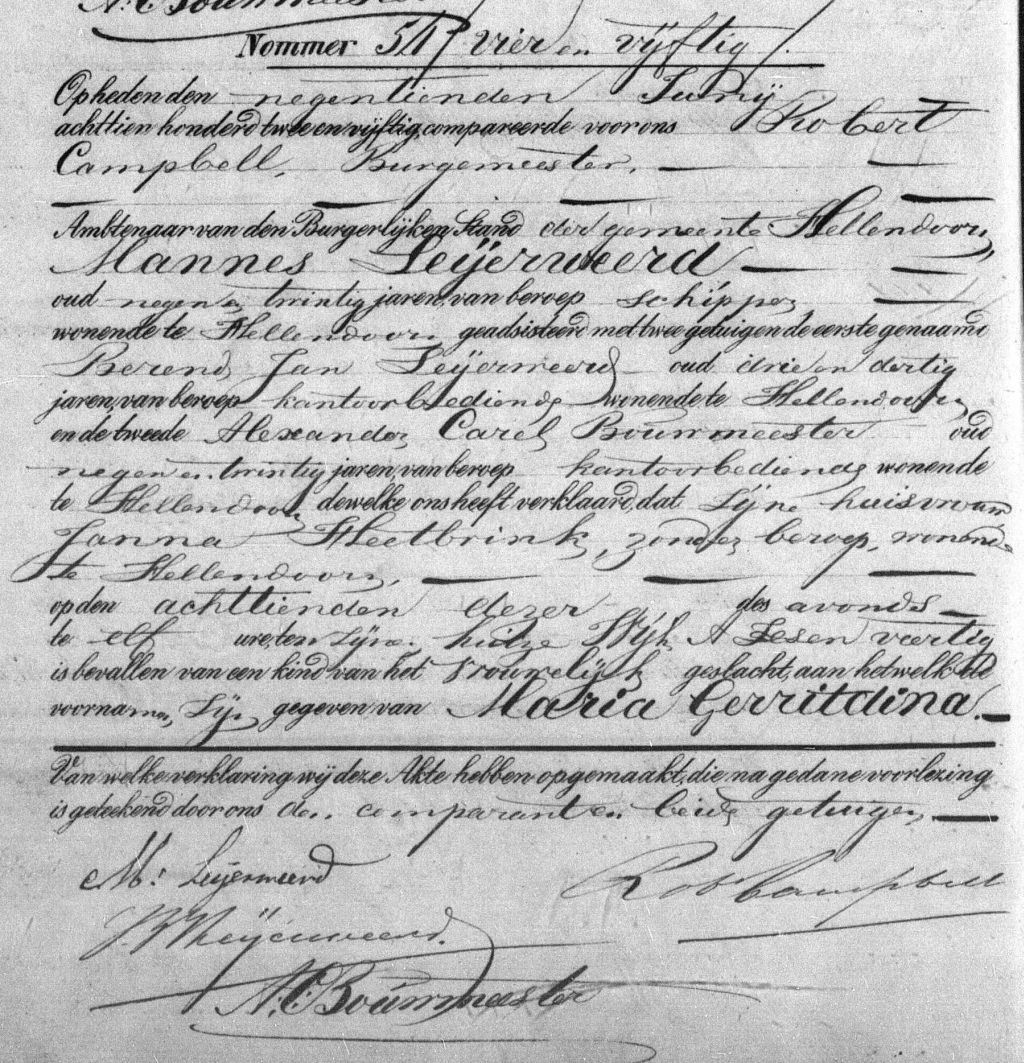 A. C. Bouwmeester
Nommer 54 / vier en vijftig /.
Op heden den negentienden Junij
achttien honderd twee en vijftig, compareerde voor ons Robert
Campbell, Burgemeester,
Ambtenaar van den Burgerlijken Stand der gemeente Hellendoorn,
Mannes Leijerweerd
oud negen en twintig jaren, van beroep schipper
wonende te Hellendoorn geadsisteerd met twee getuigen de eerste genaamd
Berend Jan Leijerweerd oud drie en dertig
jaren, van beroep kantoorbediende wonende te Hellendoorn
en de tweede Alexander Carel Bouwmeester oud
negen en twintig jaren, van beroep kantoorbediende wonende
te Hellendoorn dewelke ons heeft verklaard, dat Zijne huisvrouw
Janna Heetbrink, zonder beroep, wonende
te Hellendoorn,
op den achttienden dezer des avonds
te elf ure, ten zijne huize Wijk A zesen veertig
is bevallen van een kind van het vrouwelijk geslacht, aan hetwelk de
voornamen Zijn gegeven van Maria Gerritdina.
Van welke verklaring wij deze Akte hebben opgemaakt, die na gedane voorlezing
is geteekend door ons den comparant en beide getuigen
M: Leijerweerd Rob Campbell
B J Leijerweerd.
A. C. Bouwmeester